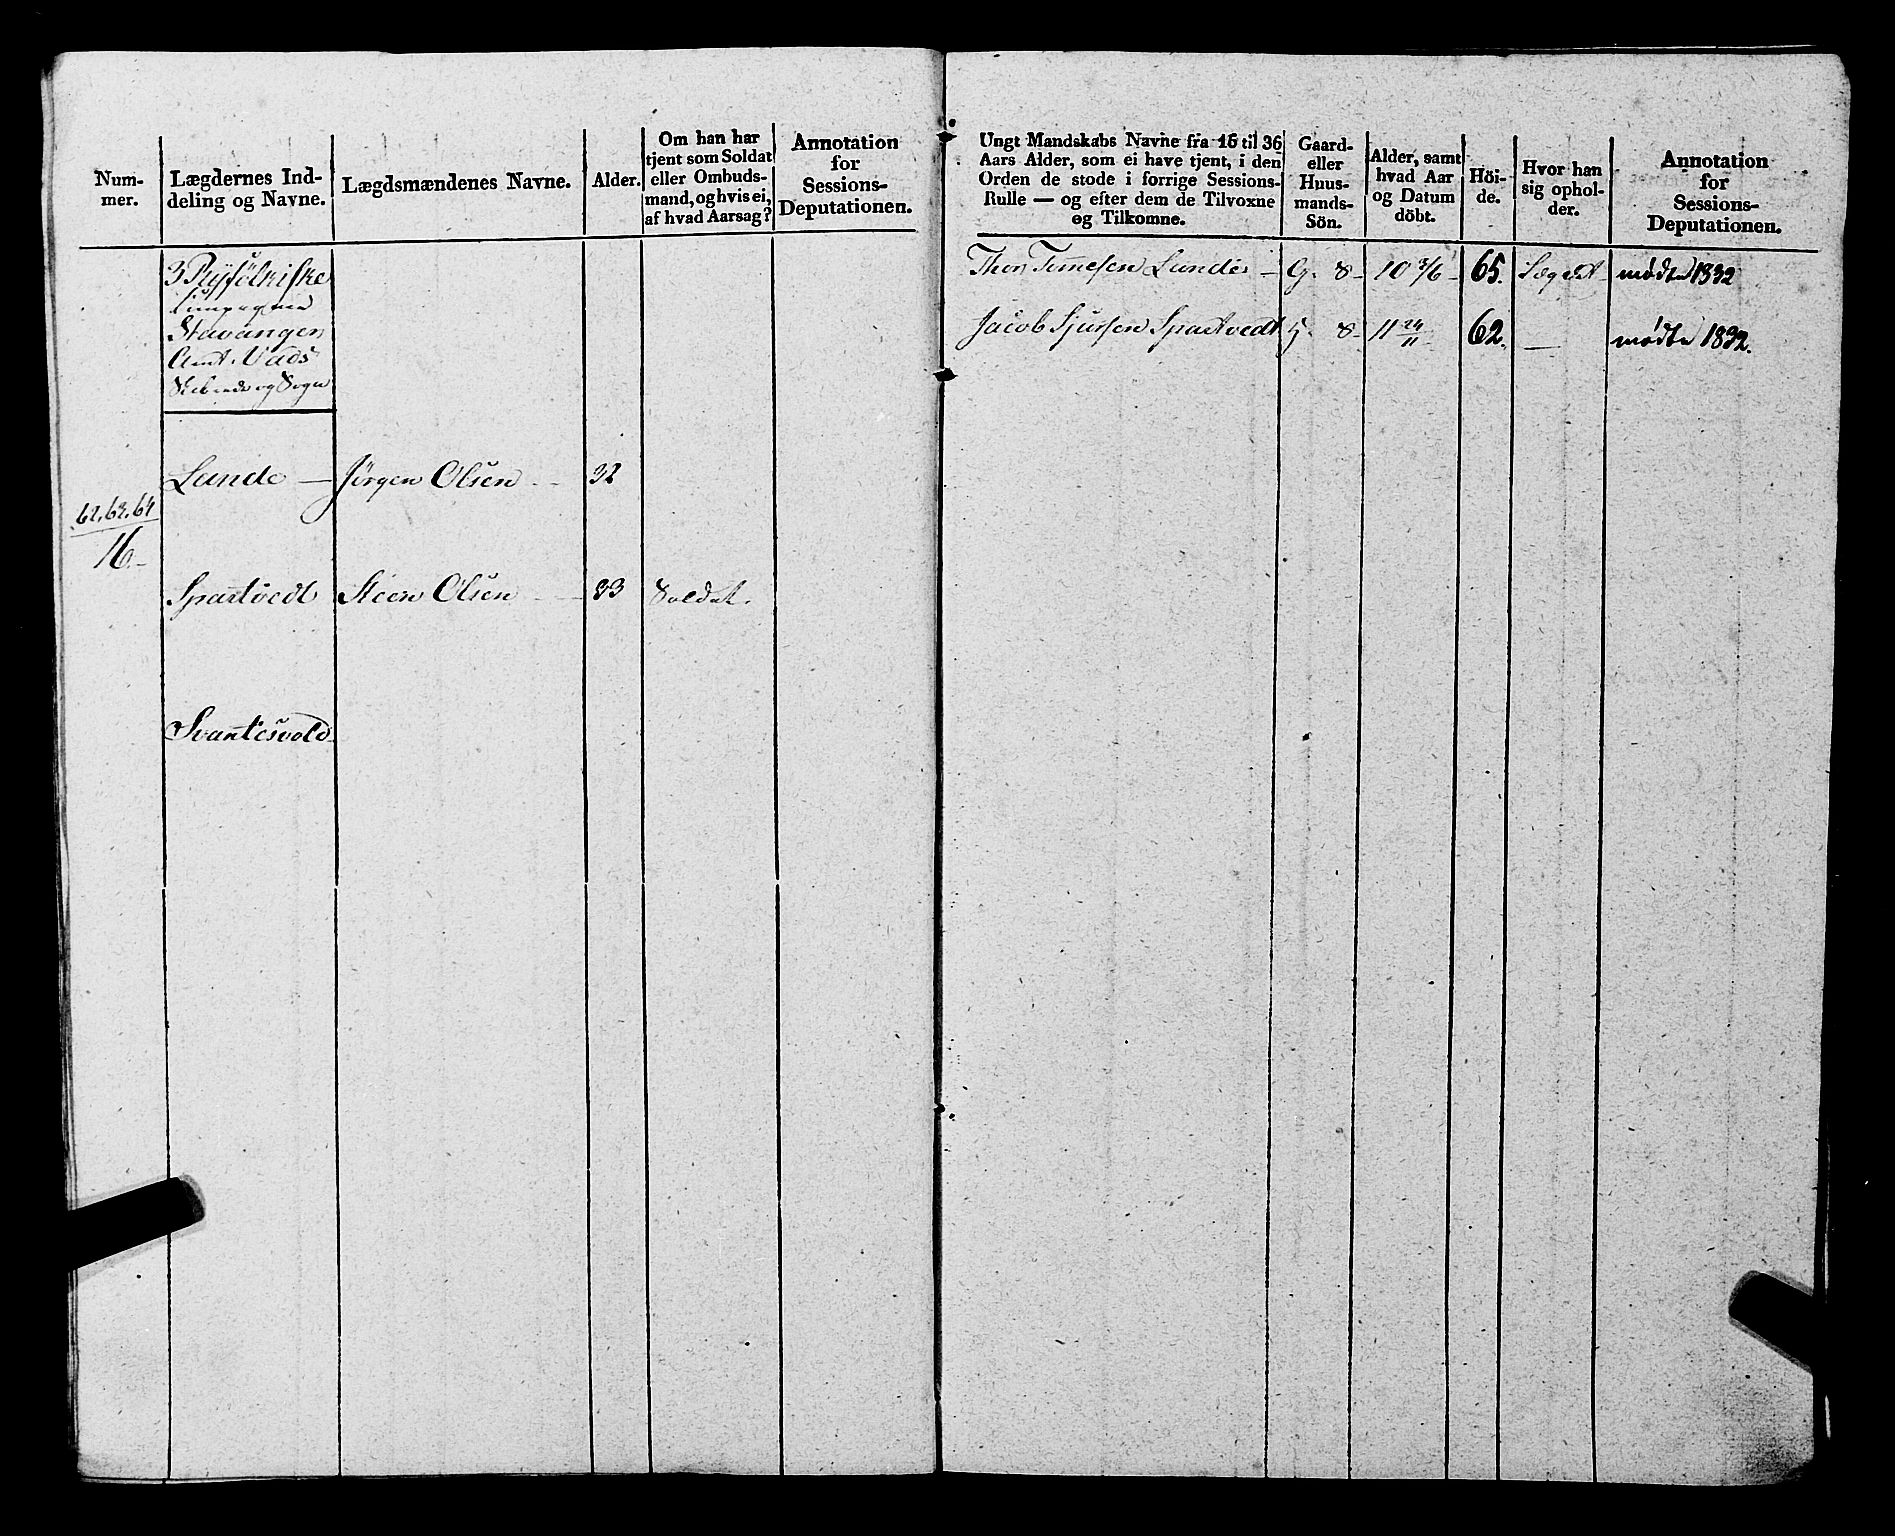 Num-
mer.
Lægdernes Ind-
deling og Navne.
Lægdsmændenes Navne.
Alder.
Om han har
tjent som Soldat
eller Ombuds-
mand, og hvis ei,
af hvad Aarsag?
Annotation
for
Sessions-
Deputationen.
3 Ryfölkiske
Stavanger
Amt. Vads
og Sogn
Lunde — Jörgen Olsen 32
62, 63, 64
16.
Spartvedt Steen Olsen 33 Soldat.
Svantesvold
Ungt Mandskabs Navne fra 16 til 36
Aars Alder, som ei have tjent, i den
Orden de stode i forrige Sessions-
Rulle — og efter dem de Tilvoxne
og Tilkomne.
Gaard-
eller
Huus-
mands-
Sön.
Alder, samt
hvad Aar
og Datum
döbt.
Höi-
de.
Hvor han
sig ophol-
der.
Annotation
for
Sessions-
Deputationen.
Thor Lunde — G. 8 - 10 3/6 - 65. Lægdet mødte 1832
Jacob Sjursen Spartvedt G. 8 - 11 24/11 62. — mødte 1832.